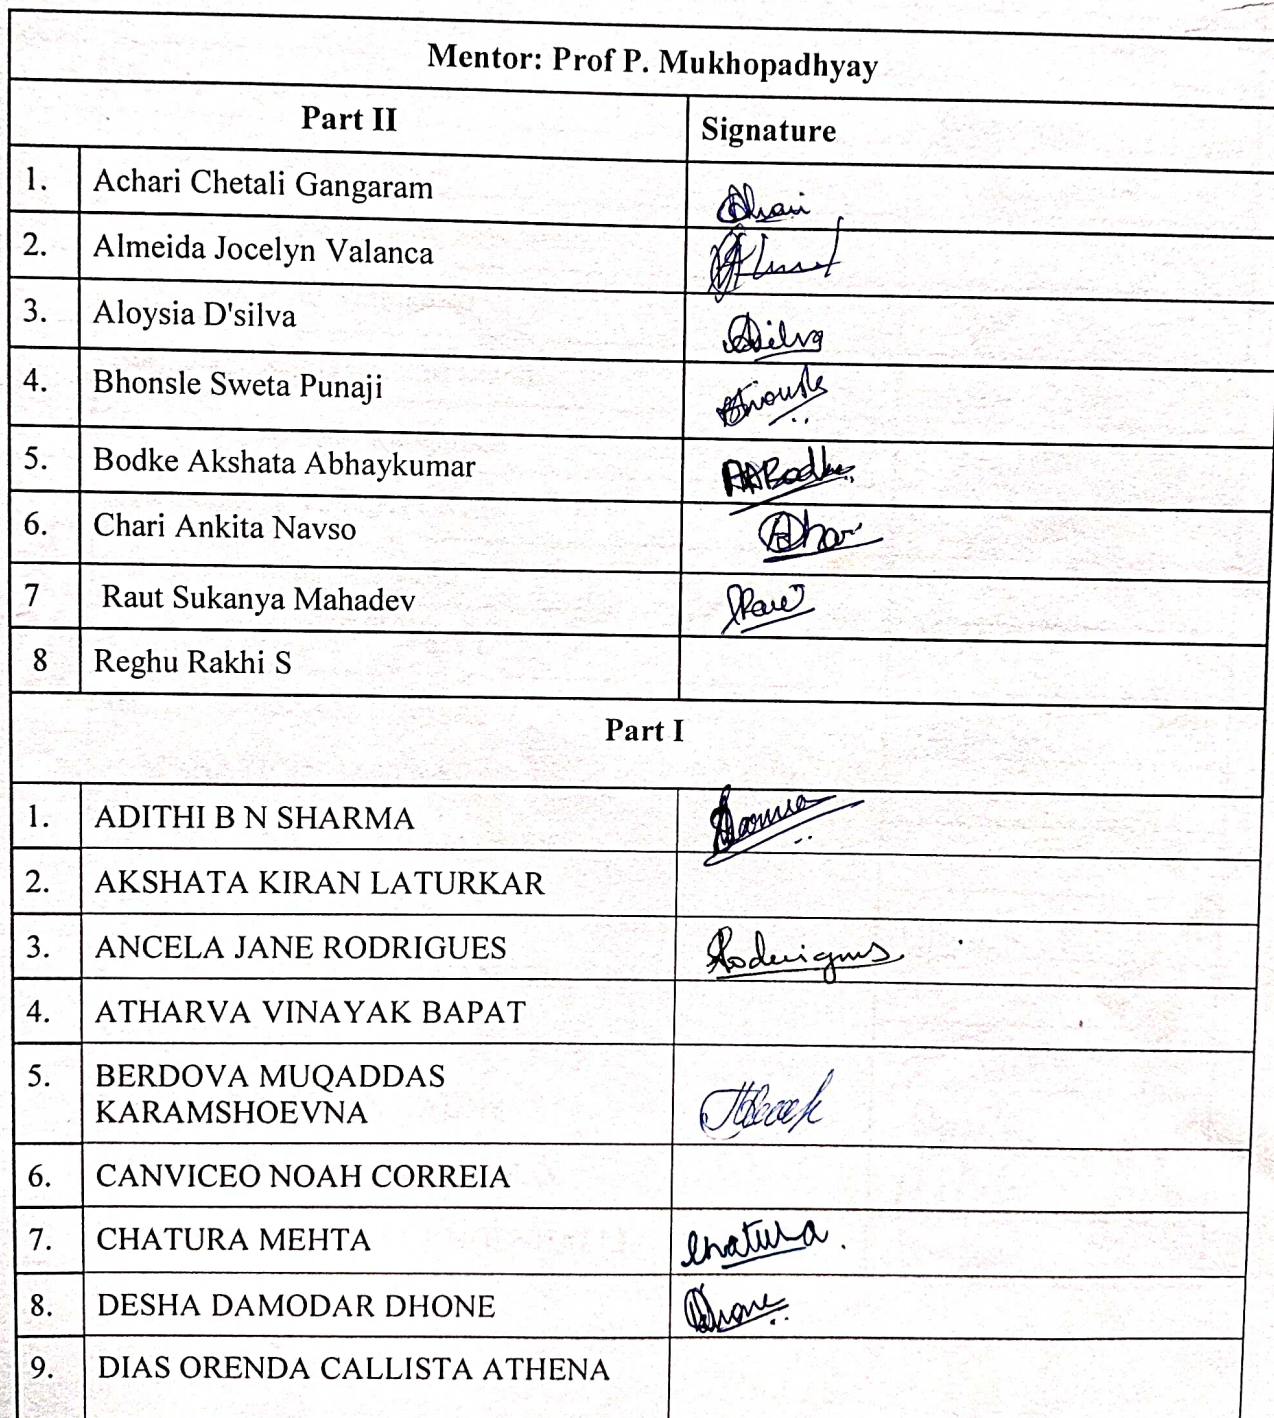 Mentor: Prof P. Mukhopadhyay
Part II Signature
1. Achari Chetali Gangaram
2. Almeida Jocelyn Valanca
3. Aloysia D'silva
4. Bhonsle Sweta Punaji
5. Bodke Akshata Abhaykumar AABodke
6. Chari Ankita Navso
7 Raut Sukanya Mahadev
8 Reghu Rakhi S
Part I
1. ADITHI B N SHARMA
2. AKSHATA KIRAN LATURKAR
3. ANCELA JANE RODRIGUES Rodrigues
4. ATHARVA VINAYAK BAPAT
5. BERDOVA MUQADDAS
KARAMSHOEVNA
6. CANVICEO NOAH CORREIA
7. CHATURA MEHTA Chatura.
8. DESHA DAMODAR DHONE Dhone
9. DIAS ORENDA CALLISTA ATHENA